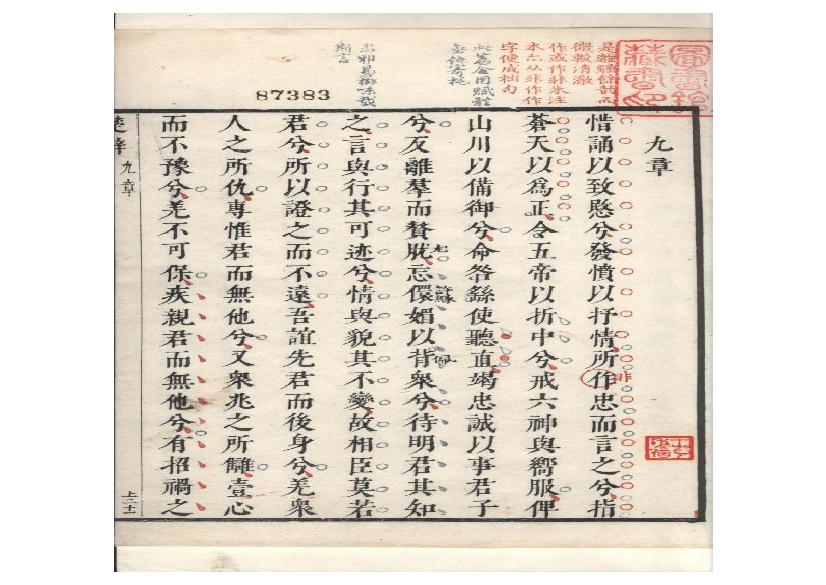 是離騷餘韻而
微較清澈
作或作非朱注
字便成拙句
此篇全用賦體
無他寄托
斯言
87383
九章
惜誦以致愍兮發憤以抒情所作忠而言之兮指
非
蒼天以爲正令五帝以折中兮戒六神與嚮服俾
山川以備御兮命咎繇使聽直竭忠誠以事君子
兮反離羣而贅肬忘儇媚以背衆兮待明君其知
之言與行其可迹兮情與貌其不變故相臣莫若
君兮所以證之而不遠吾誼先君而後身兮羌衆
人之所仇專惟君而無他兮又衆兆之所讎壹心
而不豫兮羌不可保疾親君而無他兮有招禍之
楚辭 九章